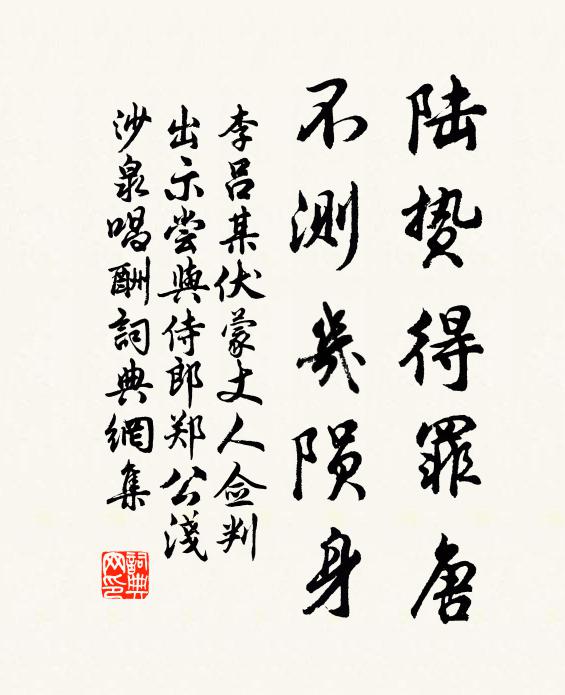 陆贽得罪唐
不测几陨身
李吕某伏蒙丈人佥判
出示尝與侍郎郑公浅
沙泉唱酬詞典網集
詞典网印